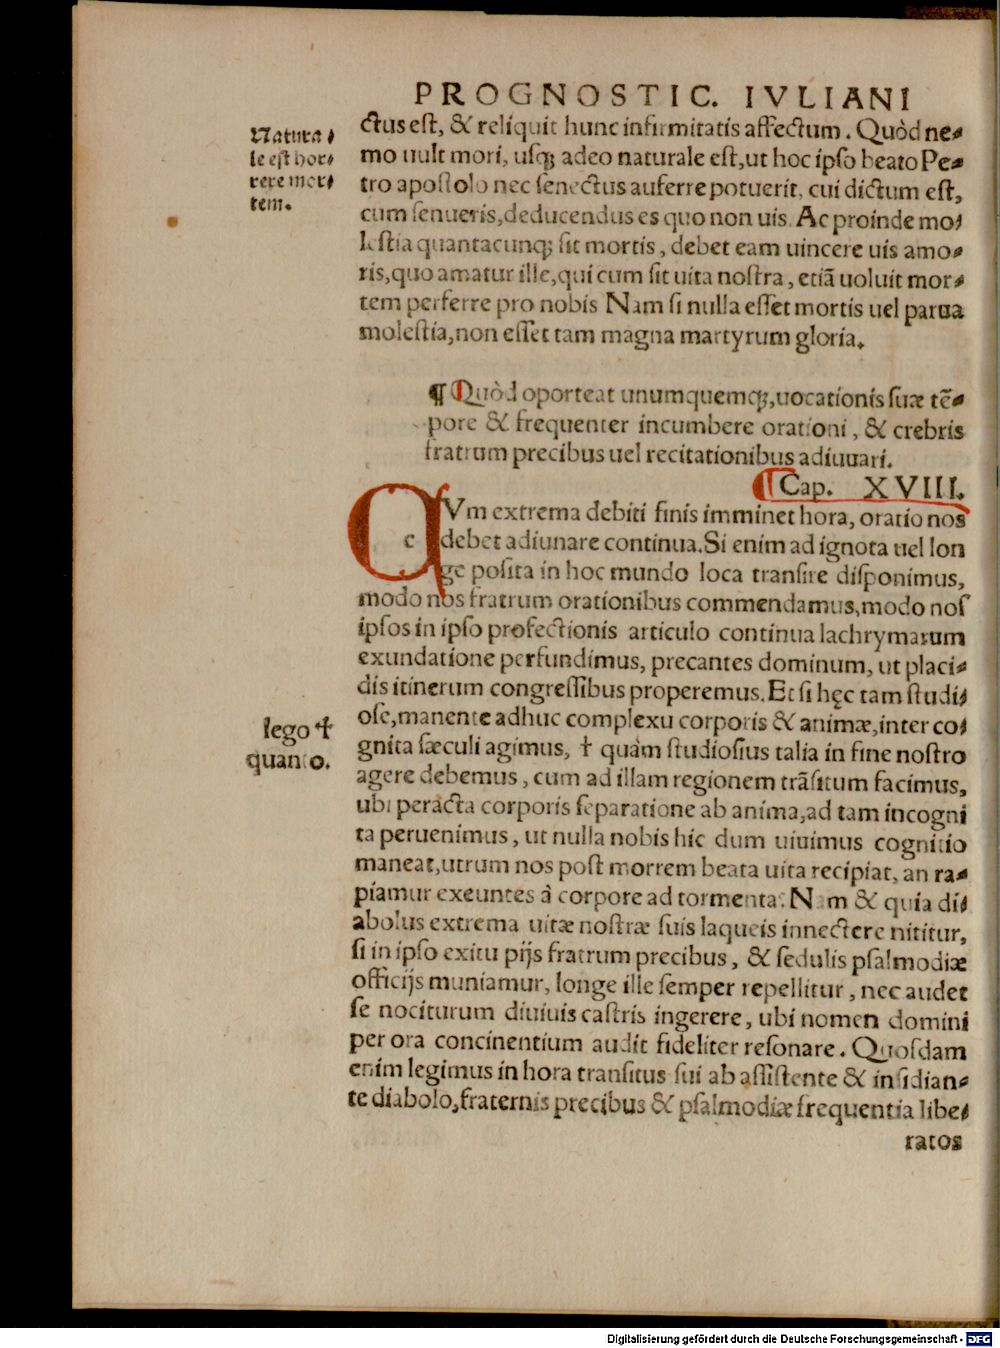 PROGNOSTIC. IVLIANI
Natura⸗
le est hor⸗
rere mor⸗
tem.
ctus est, & reliquit hunc infirmitatis affectum. Quòd ne⸗
mo uult mori, usq; adeo naturale est, ut hoc ipso beato Pe⸗
tro apostolo nec senectus auferre potuerit, cui dictum est,
cum senueris, deducendus es quo non uis. Ac proinde mo⸗
lestia quantacunq; sit mortis, debet eam uincere uis amo⸗
ris, quo amatur ille, qui cum sit uita nostra, etiã uoluit mor⸗
tem perferre pro nobis Nam si nulla esset mortis uel parua
molestia, non esset tam magna martyrum gloria.
¶ Quòd oporteat unumquemq;, uocationis suæ tẽ⸗
pore & frequenter incumbere orationi, & crebris
fratrum precibus uel recitationibus adiuuari.
¶ Cap. XVIII.
CVm extrema debiti finis imminet hora, oratio nos
debet adiunare continua. Si enim ad ignota uel lon
ge posita in hoc mundo loca transire disponimus,
modo nos fratrum orationibus commendamus, modo nos
ipsos in ipso profectionis articulo continua lachrymarum
exundatione perfundimus, precantes dominum, ut placi⸗
dis itinerum congressibus properemus. Et si hęc tam studi⸗
ose, manente adhuc complexu corporis & animæ, inter co⸗
lego †
gnita sæculi agimus, † quàm studiosius talia in fine nostro
quanto.
agere debemus, cum ad illam regionem trãsitum facimus,
ubi peracta corporis separatione ab anima, ad tam incogni
ta peruenimus, ut nulla nobis hic dum uiuimus cognitio
maneat, utrum nos post mortem beata uita recipiat, an ra⸗
piamur exeuntes à corpore ad tormenta. Nam & quia di⸗
abolus extrema uitæ nostræ suis laqueis innectere nititur,
si in ipso exitu pijs fratrum precibus, & sedulis psalmodiæ
officijs muniamur, longe ille semper repellitur, nec audet
se nociturum diuiuis castris ingerere, ubi nomen domini
per ora concinentium audit fideliter resonare. Quosdam
enim legimus in hora transitus sui ab assistente & insidian⸗
te diabolo, fraternis precibus & psalmodiæ frequentia libe⸗
ratos
Digitalisierung gefördert durch die Deutsche Forschungsgemeinschaft - DFG